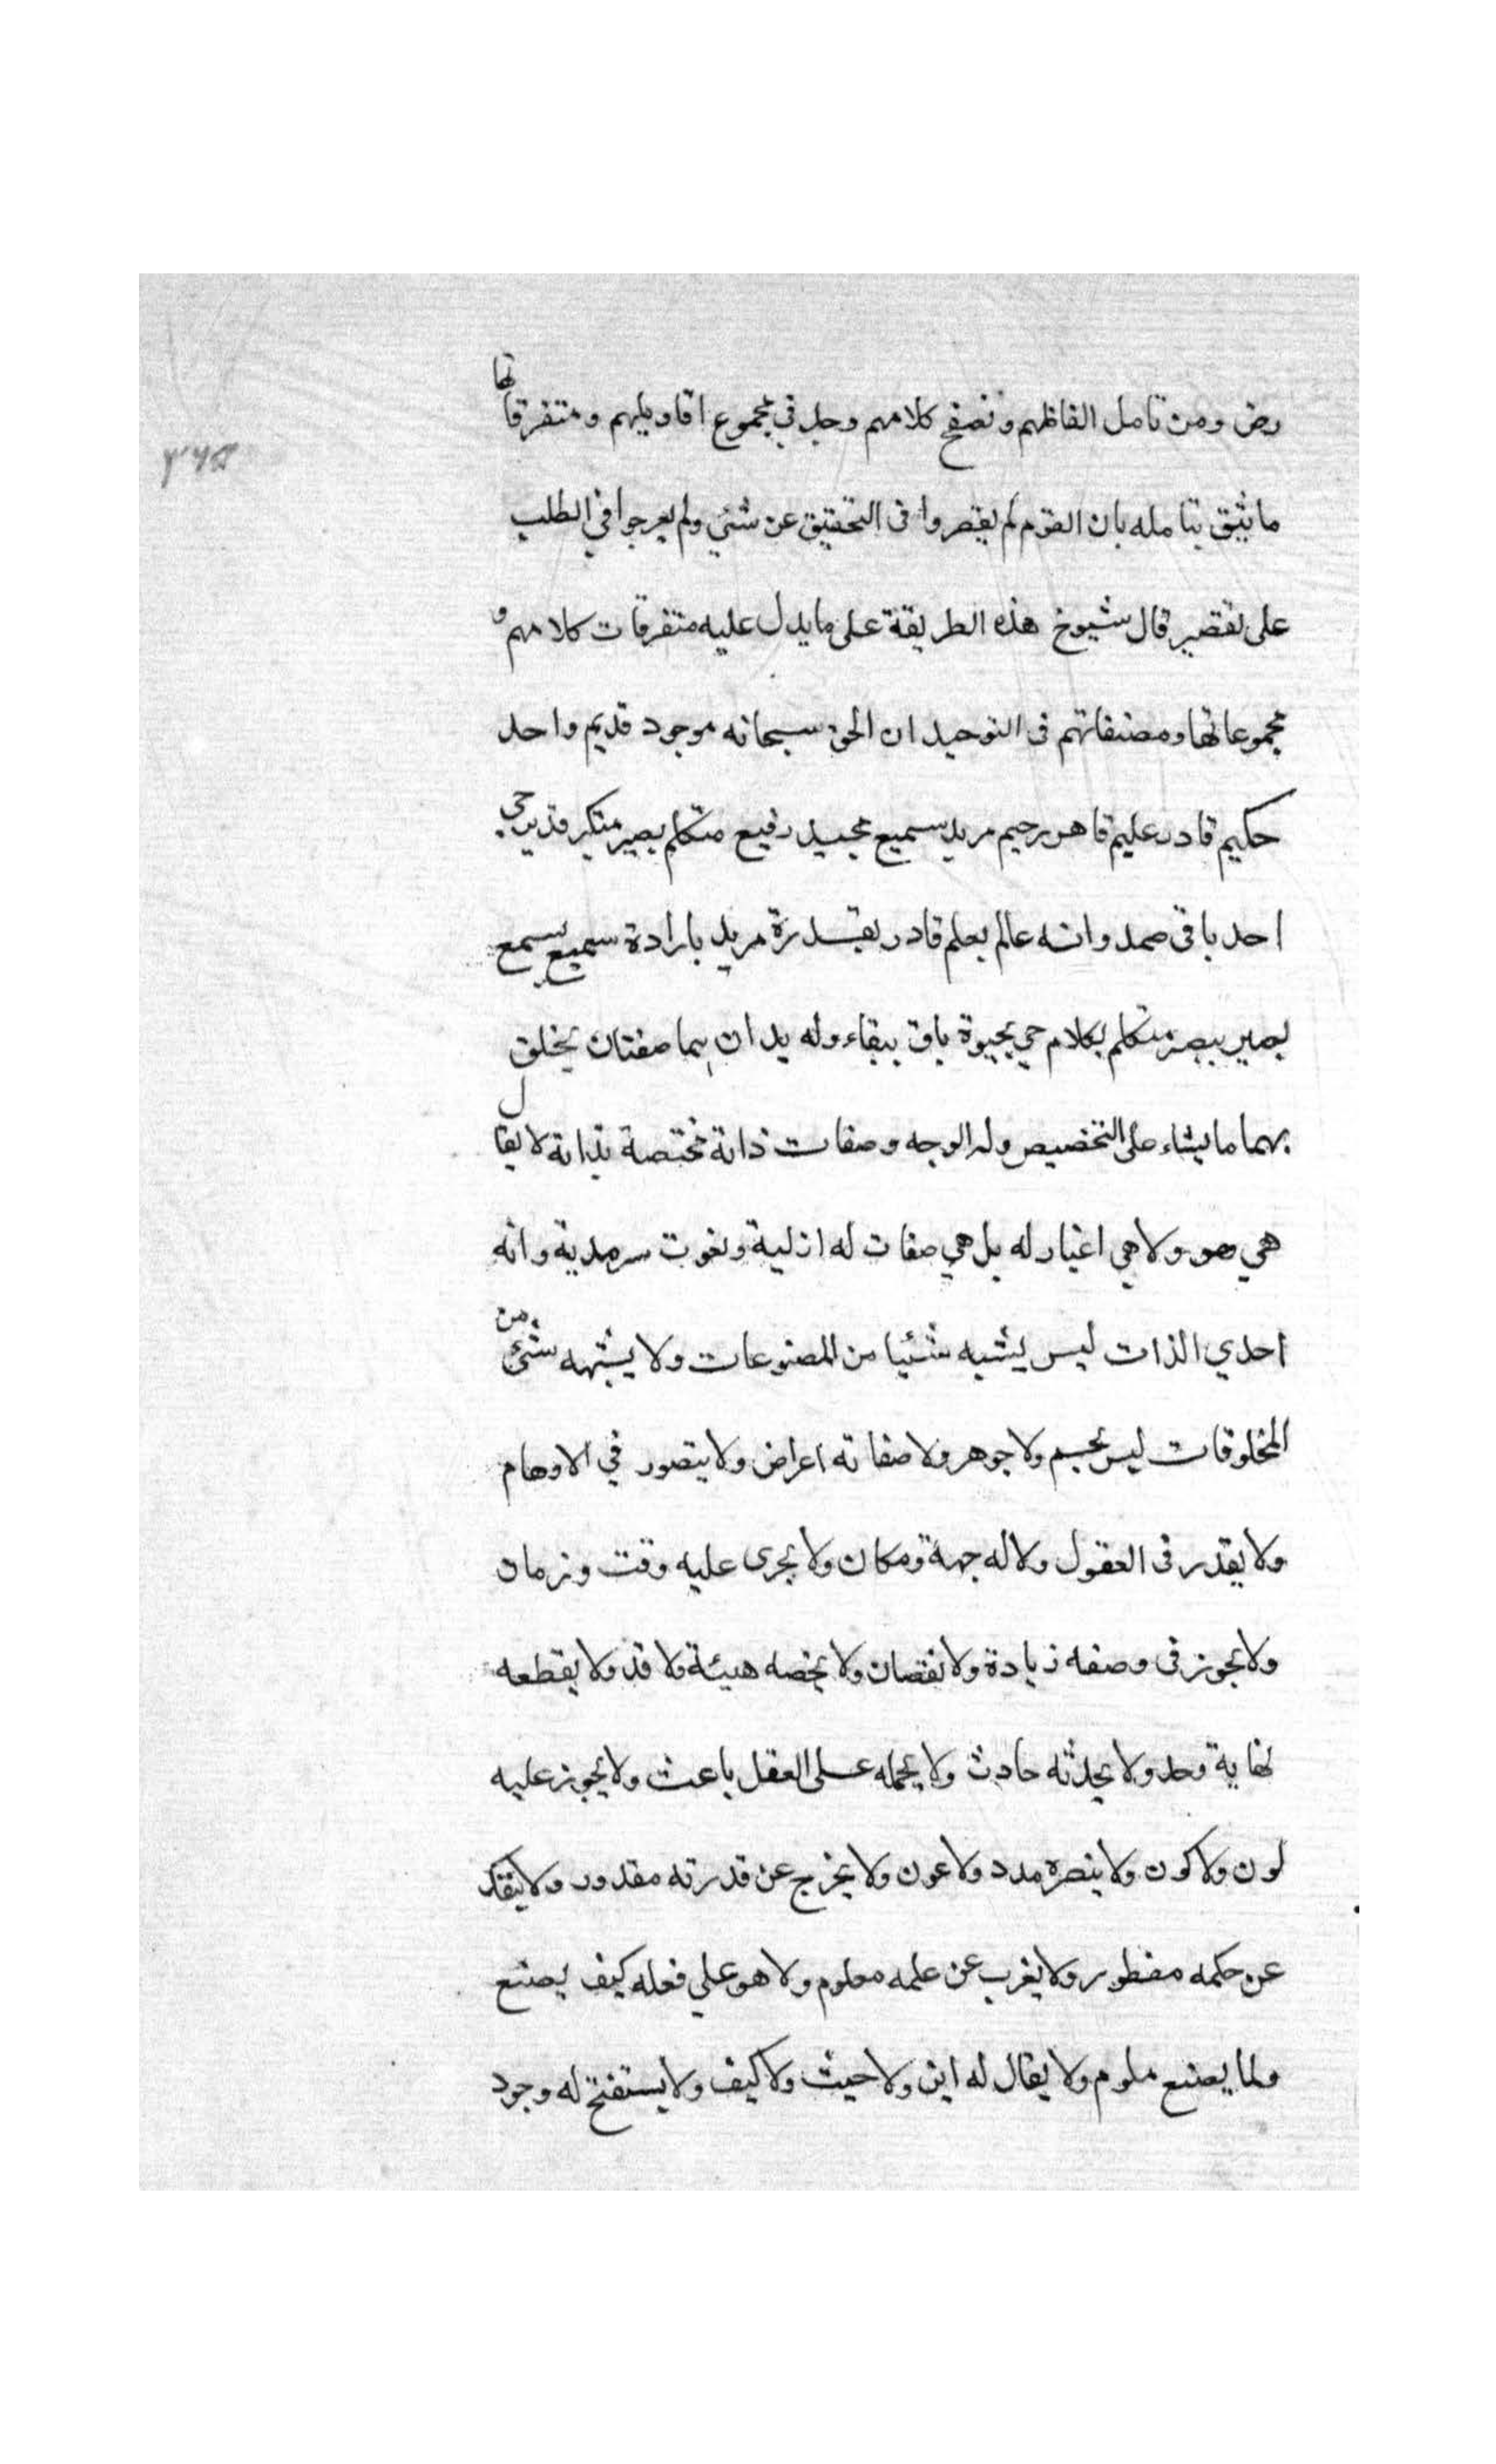 رض ومن تامل الفاظهم وتصفح كلامهم وجد في مجموع اقاويلهم ومتفرقاتها
ما يثق بتامله بان القوم لم يقصروا في التحقيق عن شئي ولم يعرجوا في الطلب
على تقصير قال شيوخ هذه الطريقة على ما يدل عليه متفرقات كلامهم و
مجموعاتها ومصنفاتهم في التوحيد ان الحق سبحانه موجود قديم واحد
حكيم قادر عليم قاهر رحيم مريد سميع مجيد رفيع متكلم بصير متكبر قدير حي
احد باقي صمد وانه عالم بعلم قادر بقدرة مريد بارادة سميع بسمع
بصير ببصر متكلم بكلام حي بحيوة باق ببقاء وله يدان هما صفتان يخلق
بهما ما يشاء على التخصيص وله الوجه وصفات ذاته مختصة بذاته لا يقال
هي هو ولا هي اغيار له بل هي صفات له ازلية ونعوت سرمدية وانه
احدي الذات ليس يشبه شئيا من المصنوعات ولا يشبهه شئ من
المخلوقات ليس بجسم ولا جوهر ولا صفاته اعراض ولا يتصور في الاوهام
ولا يقدر في العقول ولا له جهة ومكان ولا يجرى عليه وقت وزمان
ولا يجوز في وصفه زيادة ولا نقصان ولا يخصه هيئة ولا قد ولا يقطعه
نهاية وحد ولا يحدثه حادث ولا يحمله على العقل باعث ولا يجوز عليه
لون ولا كون ولا ينصره مدد ولا عون ولا يخرج عن قدرته مقدور ولا ينفك
عن حكمه مفطور ولا يغرب عن علمه معلوم ولا هو علي فعله كيف يصنع
ولما يصنع ملوم ولا يقال له اين ولا حيث ولا كيف ولا يستفتح له وجود